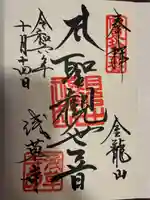 奉拝
金龍山
聖観世音
浅草寺
令和六年
十月十四日